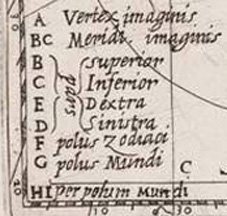 A Vertex imaginis
BC Meridi. imaginis
B superior
C pars Inferior
E Dextra
D Sinistra
F polus Zodiaci
G polus Mundi
C
HI per polum Mundi
10
20
10
30